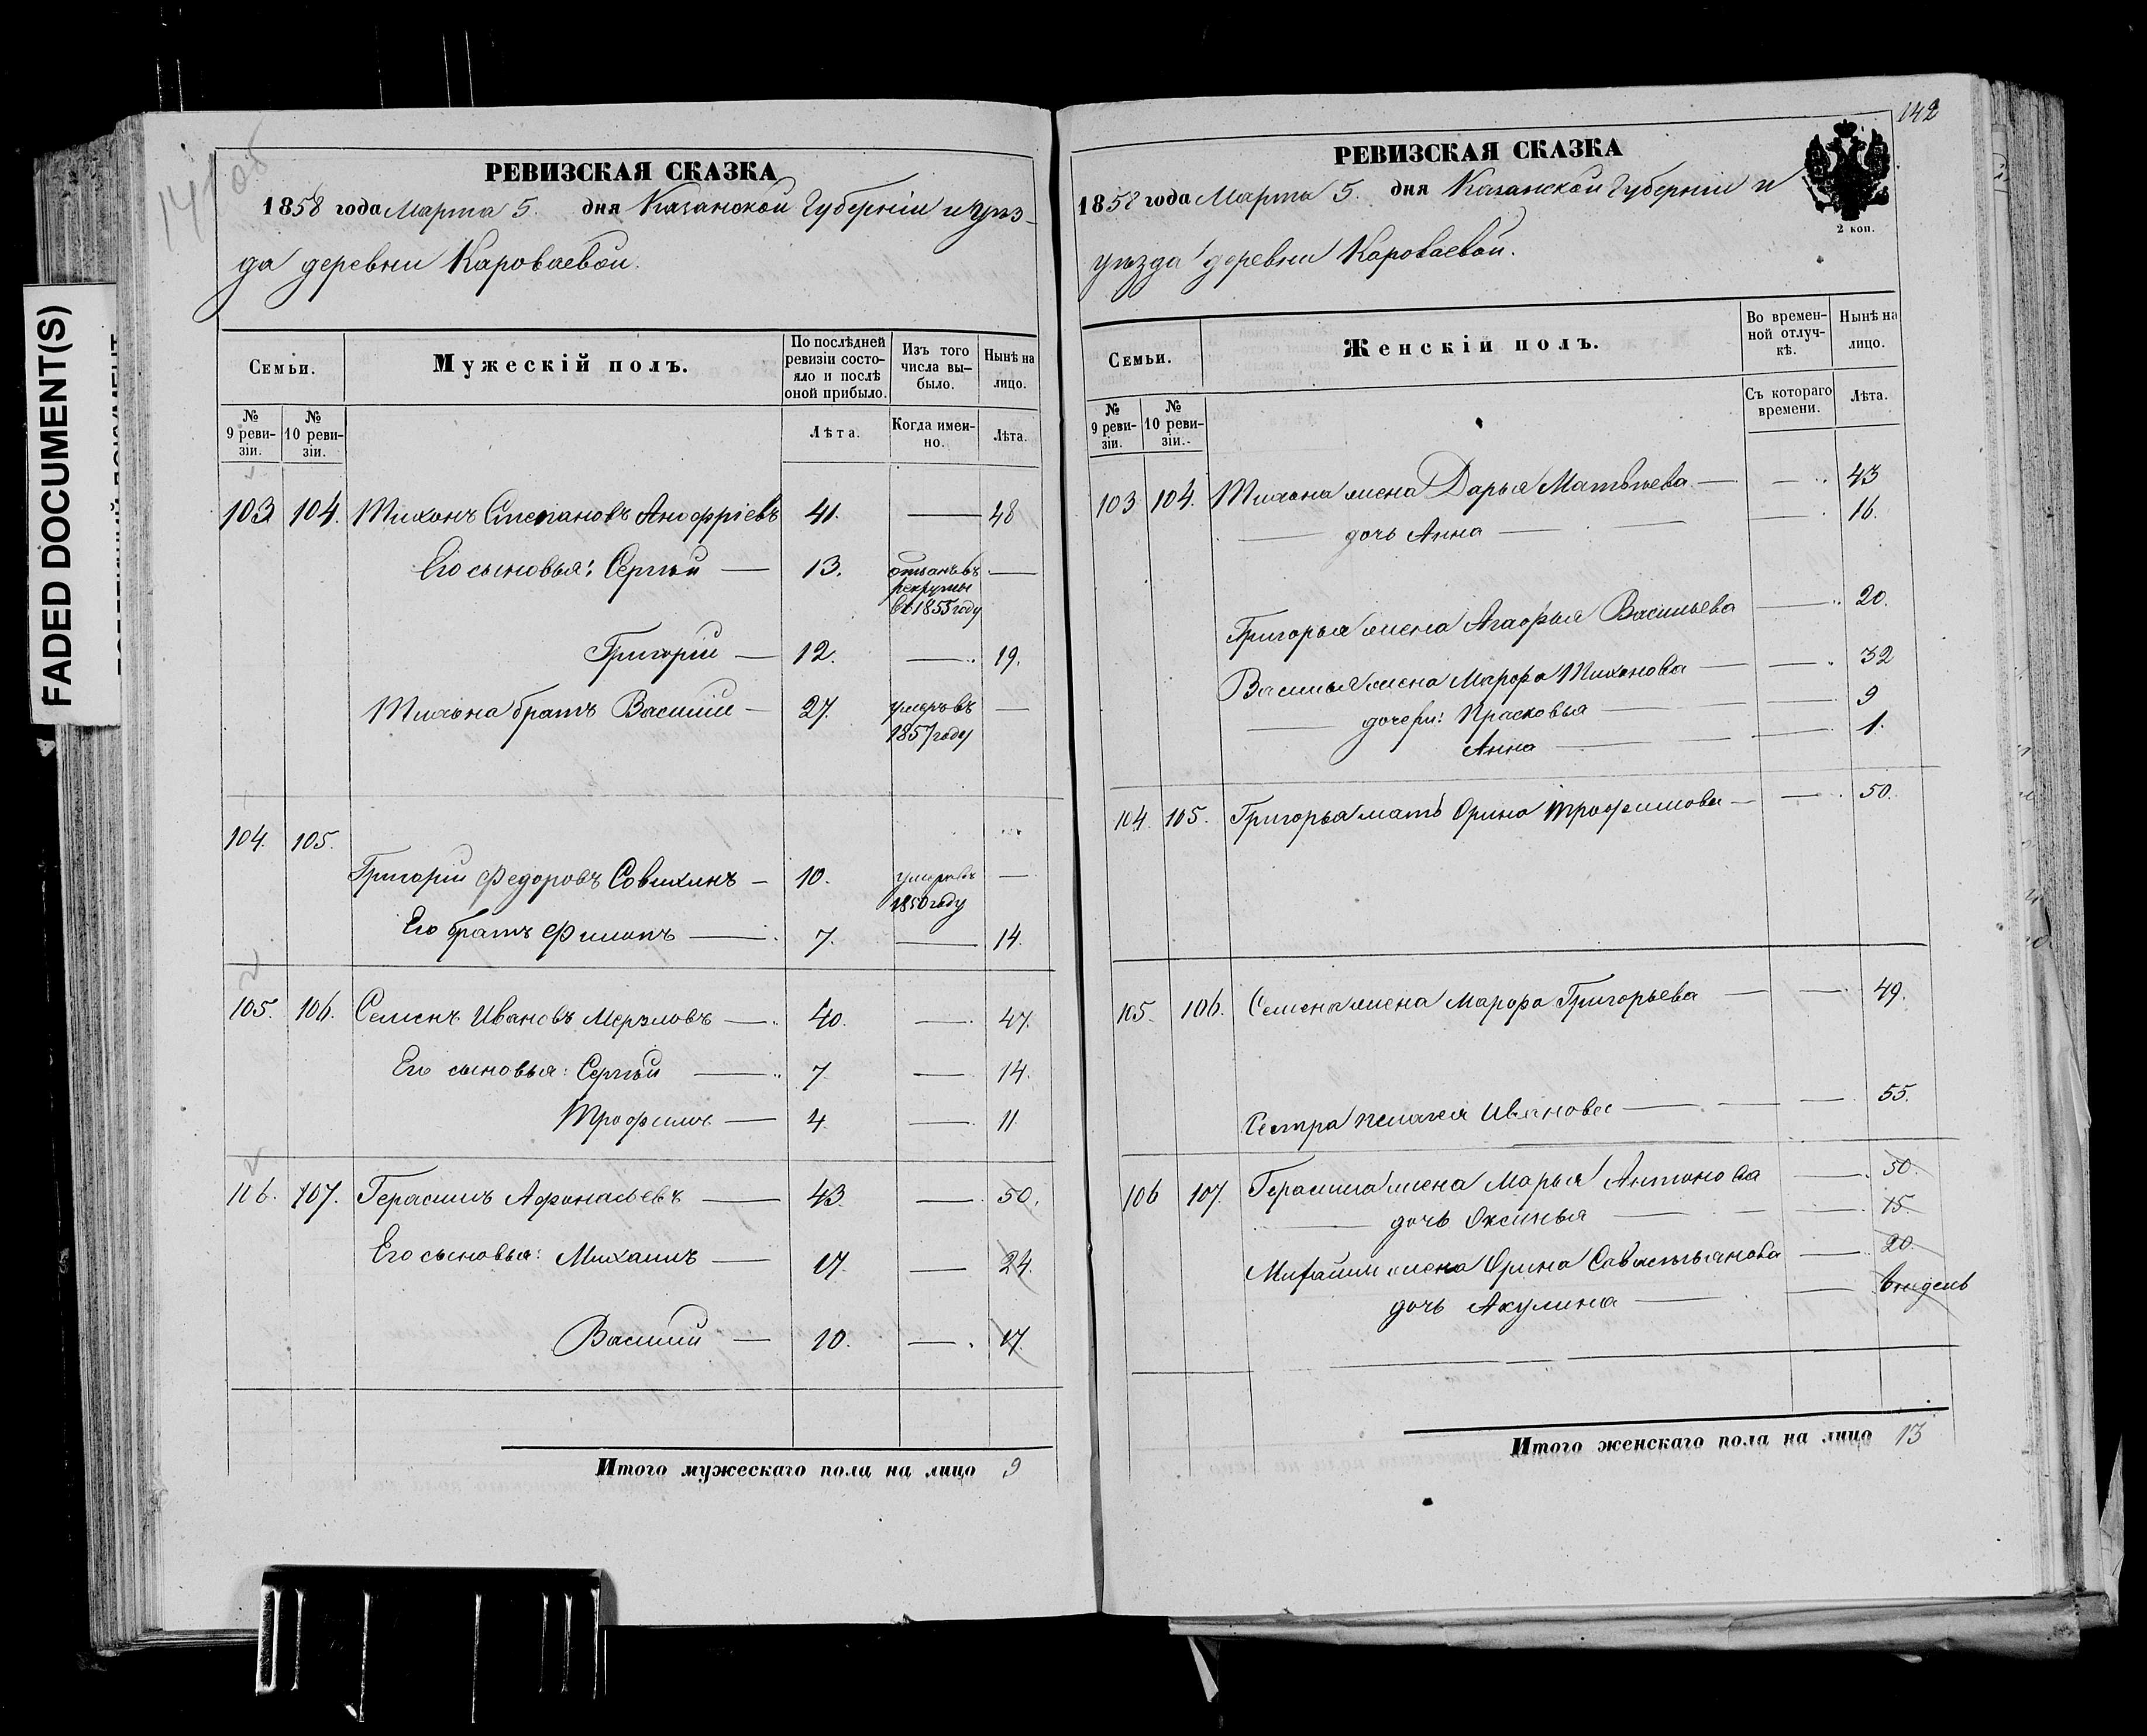 FADED DOCUMENT(S)
141 об
РЕВИЗСКАЯ СКАЗКА
1858 года Марта 5. дня Казанской Губернiи и Уѣз-
да деревни Короваевой.
Семьи.
Мужескiй полъ.
По послѣдней ревизiи состо-яло и послѣ оной прибыло.
Изъ того числа вы-было.
Нынѣ на лицо.
№ 9 реви-зiи.
№ 10 реви-зiи.
Лѣта.
Когда имен-но.
Лѣта.
103 104. Тихонъ Степановъ Анофрiевъ 41. — 48
Его сыновья: Сергѣй — 13. отданъ въ рекруты въ 1855 году —
Григорiй — 12. — 19.
Тихона братъ Василiй — 27. умеръ въ 1857 году —
104. 105.
Григорiй Федоровъ Совихинъ — 10. умеръ въ 1850 году —
Его братъ Филипъ — 7. — 14.
105. 106. Семенъ Ивановъ Мерзловъ — 40. — 47.
Его сыновья: Сергѣй — 7 — 14.
Трофимъ — 4 — 11.
106. 107. Герасимъ Афонасьевъ — 43. — 50.
Его сыновья: Михаилъ — 17. — 24.
Василiй — 10. — 17.
Итого мужескаго пола на лицо 9
142
РЕВИЗСКАЯ СКАЗКА
1858 года Марта 5. дня Казанской Губернiи и
2 коп.
уѣзда деревни Короваевой.
Семьи.
Женскiй полъ.
Во времен-ной отлуч-кѣ.
Нынѣ на лицо.
№ 9 реви-зiи.
№ 10 реви-зiи.
Съ котораго времени.
Лѣта.
103 104. Тихона жена Дарья Матвѣева — — 43
— дочь Анна — — 16.
Григорья жена Агафья Васильева — 20.
Василья жена Марфа Тихонова — — 32
— дочери: Прасковья — — 9
Анна — — 1.
104. 105. Григорья мать Орина Трофимова — — 50.
105. 106. Семена жена Марфа Григорьева — — 49.
Сестра Пелагея Иванова — — 55.
106 107. Герасима жена Марья Антонова — 50.
— дочь Оксинья — — 15.
Михайлы жена Орина Савастьянова — 20.
дочь Акулина — — 6 недель
Итого женскаго пола на лицо 13